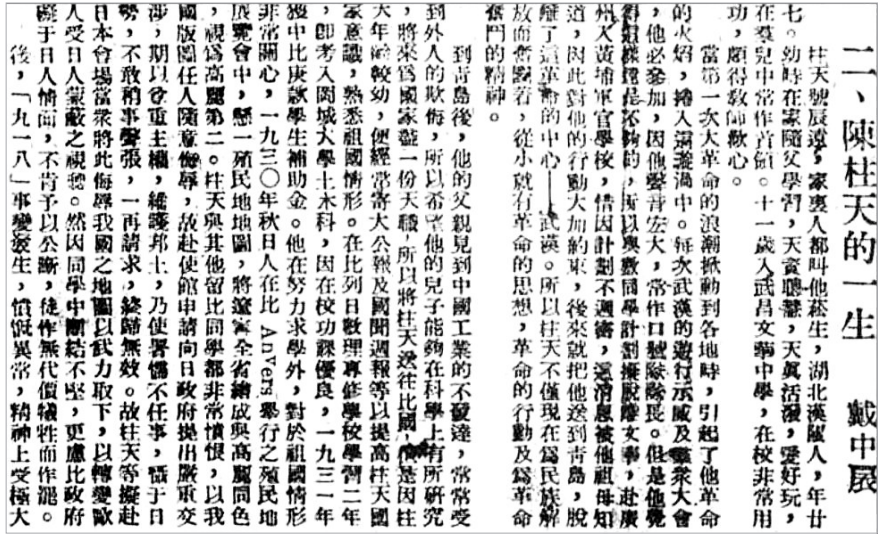 二、陳柱天的一生　戴中扆
柱天號辰遠，家裏人都叫他菘生，湖北漢陽人，年廿
七。幼時在家隨父學習，天資聰慧，天眞活潑，愛好玩，
在羣兒中常作首領。十一歲入武昌文華中學，在校非常用
功，頗得敎師歡心。
當第一次大革命的浪潮掀動到各地時，引起了他革命
的火焰，捲入這漩渦中。每次武漢的遊行示威及羣衆大會
，他必參加，因他聲音宏大，常作口號隊隊長。但是他覺
得這樣還是不夠的，所以與數同學計劃擬脫離文華，赴廣
州入黃埔軍官學校，惜因計劃不週密，這消息被他祖母知
道，因此對他的行動大加約束，後來就把他送到青島，脫
離了這革命的中心——武漢。所以柱天不僅現在爲民族解
放而奮鬥着，從小就有革命的思想，革命的行動及爲革命
奮鬥的精神。
到青島後，他的父親見到中國工業的不發達，常常受
到外人的欺侮，所以希望他的兒子能夠在科學上有所研究
，將來爲國家盡一份天職，所以將柱天送往比國，但是因柱
天年齡較幼，便經常寄大公報及國聞週報等以提高柱天國
家意識，熟悉祖國情形。在比列日數理專修學校學習二年
，卽考入岡城大學土木科，因在校功課優良，一九三一年
獲中比庚款學生補助金。他在努力求學外，對於祖國情形
非常關心，一九三〇年秋日人在比 Anvers 舉行之殖民地
展覽會中，懸一殖民地地圖，將遼寧全省繪成與高麗同色
，視爲高麗第二。柱天與其他留比同學都非常憤恨，以我
國版圖任人隨意侮辱，故赴使館申請向日政府提出嚴重交
涉，期以重主權，維護邦土，乃使署懦不任事，懾于日
勢，不敢稍事聲張，一再請求，終歸無效。故柱天等擬赴
日本會場當衆將此侮辱我國之地圖以武力取下，以轉變歐
人受日人蒙蔽之視聽。然因同學中團結不堅，更慮比政府
礙于日人情面，不肯予以公斷，徒作無代價犧牲而作罷。
後，「九一八」事變發生，憤慨異常，精神上受極大